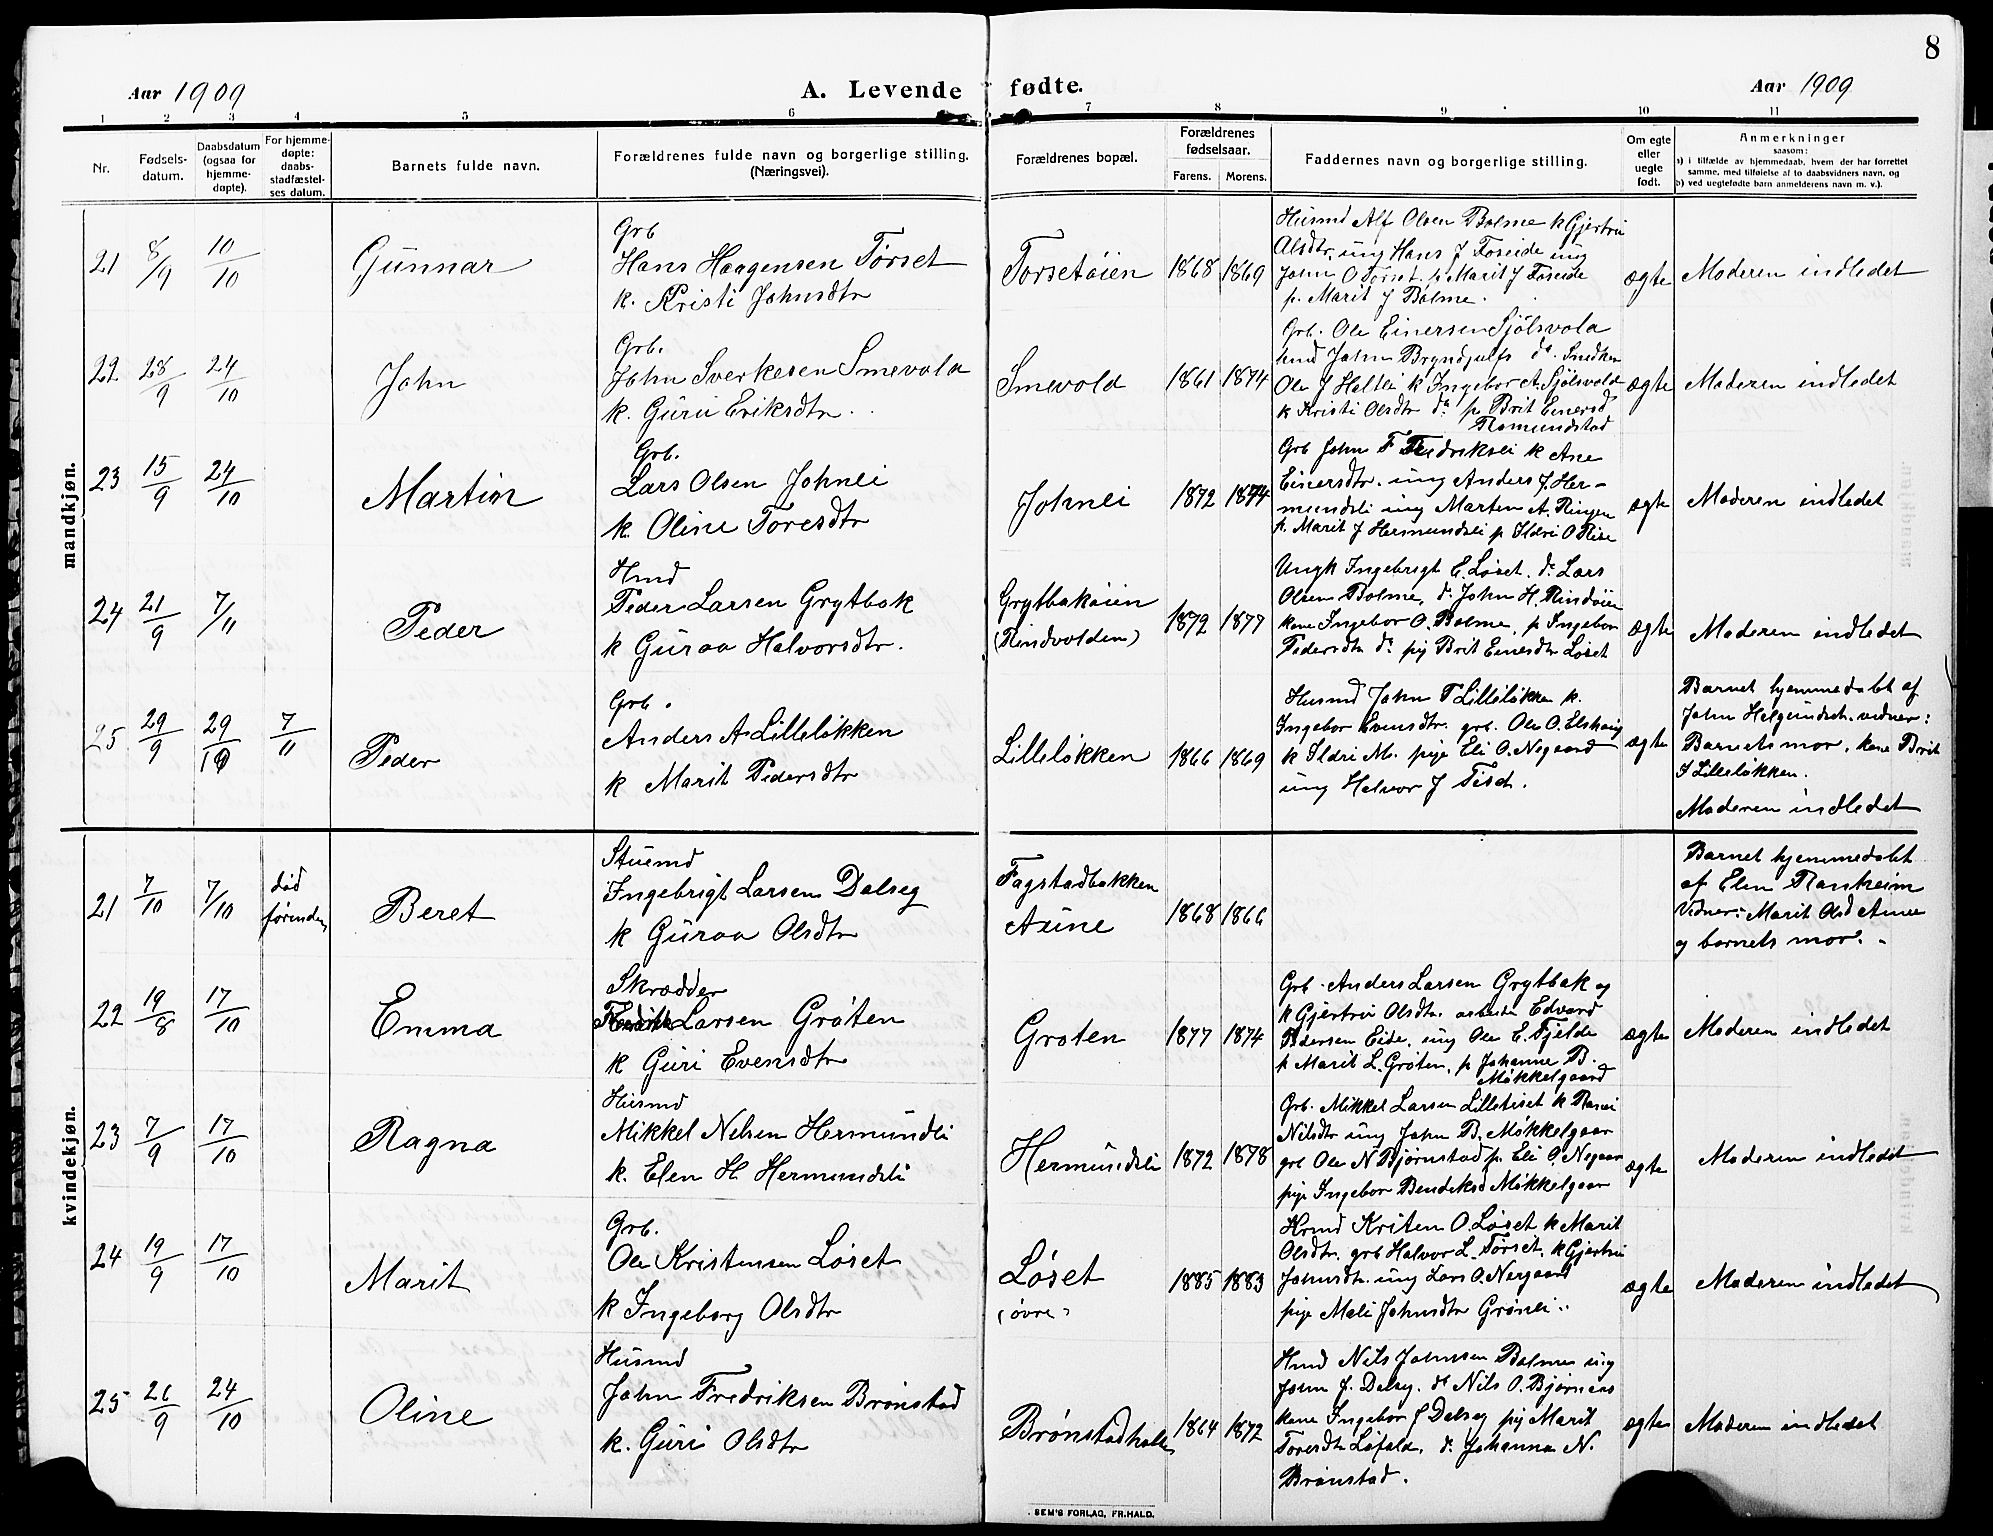 8
Aar 1909
A. Levende fødte.
Aar 1909
1 2 3 4 5 6 7 8 9 10 11
Nr.
Fødsels-
datum.
Daabsdatum
(ogsaa for
hjemme-
døpte).
For hjemme-
døpte:
daabs-
stadfæstel-
ses datum.
Barnets fulde navn.
Forældrenes fulde navn og borgerlige stilling.
(Næringsvei).
Forældrenes bopæl.
Forældrenes
fødselsaar.
Farens. Morens.
Faddernes navn og borgerlige stilling.
Om egte
eller
uegte
født.
Anmerkninger
saasom:
a) i tilfælde av hjemmedaab, hvem der har forrettet
samme, med tilføielse af to daabsvidners navn, og
b) ved uegtefødte barn anmelderens navn m. v.).
mandkjøn.
21 8/9 10/10
Gunnar
Grb
Hans Haagensen Tørset
k. Kristi Johnsdtr
Torsetøien
1868 1869
Husmd Alf Olsen Bolme k Gjertru
Olsdtr ung Hans J Foseide ung
John O Tørset p Marit J Foseide
p. Marit J Bolme.
ægte
Moderen indledet
22 28/9 24/10
John
Grb.
John Sverkesen Smevola
k. Guru Eriksdtr.
Smevold
1861 1874
Grb. Ole Einersen Sjölsvola
hmd John Bryndjulfs do. Snedker
Ole J Haltli k Ingebor A. Sjölsvold
k Kristi Olsdtr do p Brit Einersd
Romundstad
ægte
Moderen indledet
23 15/9 24/10
Martin
Grb.
Lars Olsen Johnli
k. Oline Toresdtr
Johnli
1872 1874
Grb John F Fredriksli k Ane
Einersdtr. ung Anders J. Her-
mundsli ung Marten A. Ringen
p. Marit J Hermundsli p Ildri O Rise
ægte
Moderen indledet
24 21/9 7/11
Peder
Hmd
Peder Larsen Grytbak
k Guraa Halvorsdtr.
Grytbakøien
(Rindvolden)
1872 1877
Ungk Ingebrigt E. Løset. do Lars
Olsen Bolme, do John H. Rindøien
kone Ingebor O. Bolme, p Ingebor
Pedersdtr do pij Brit Einersdtr Løset
ægte
Moderen indledet
25 29/9 29/10 7/11
Peder
Grb.
Anders A Lilleløkken
k Marit Pedersdtr
Lilleløkken
1866 1869
Husmd John T Lilleløkken k.
Ingebor Evensdtr. grb. Ole O. Elshaug
k Ildri M. pige Eli O. Negaard
ung Halvor J Tisd.
ægte
Barnet hjemmedøbt af
John Helgundseth. vidner:
Barnets mor, kone Brit
I Lilleløkken.
Moderen indledet
kvindekjøn.
21 7/10 7/10
død
førinden
Beret
Stuemd
Ingebrigt Larsen Dalseg
k Guraa Olsdtr
Fagstadbakken
Aune
1868 1866
Barnet hjemmedøbt
af Elen Ranheim
Vidner: Marit Olsd Aune
og barnets mor.
22 19/8 17/10
Emma
Skrædder
Larsen Gröten
k Guri Evensdtr
Groten
1877 1874
Grb. Anders Larsen Grytbak og
k Gjertru Olsdtr. arbeider Edvard
Pedersen Eide, ung Ole E. Fjelde
p Marit L. Gröten, p Johanne B.
Møkkelgaard
ægte
Moderen indledet
23 7/9 17/10
Ragna
Husmd
Mikkel Nelsen Hermundli
k. Elen H Hermundsli
Hermundsli
1872 1878
Grb. Mikkel Larsen Lilletiset k Ranei
Nilsdtr ung John B. Møkkelgaar
grb Ole N Bjørnstad p. Eli O. Negaar
pige Ingebor Bendiksd Møkkelgaar
ægte
Moderen indledet
24 19/9 17/10
Marit
Grb.
Ole Kristensen Løset
k Ingeborg Olsdtr
Løset
(øvre)
1885 1883
Hmd Kristen O. Løset k Marit
Olsdtr. grb Halvor L. Tørset. k Gjertru
Johnsdtr. ung Lars O. Nergaard
pige Mali Johnsdtr Grønli.
ægte
Moderen indledet
25 26/9 24/10
Oline
Husmd
John Fredriksen Brønstad
k. Guri Olsdtr
Brønstadhalle
1864 1872
Hmd Nils Johnssen Bolme ung
John J. Dalsg. do Nils O. Bjørnaas
kone Ingebor J Dalseg pij Marit
Toresdtr Løfald, do Johanna N.
Brønstad.
ægte
Moderen indledet
SEM'S FORLAG, FR.HALD.